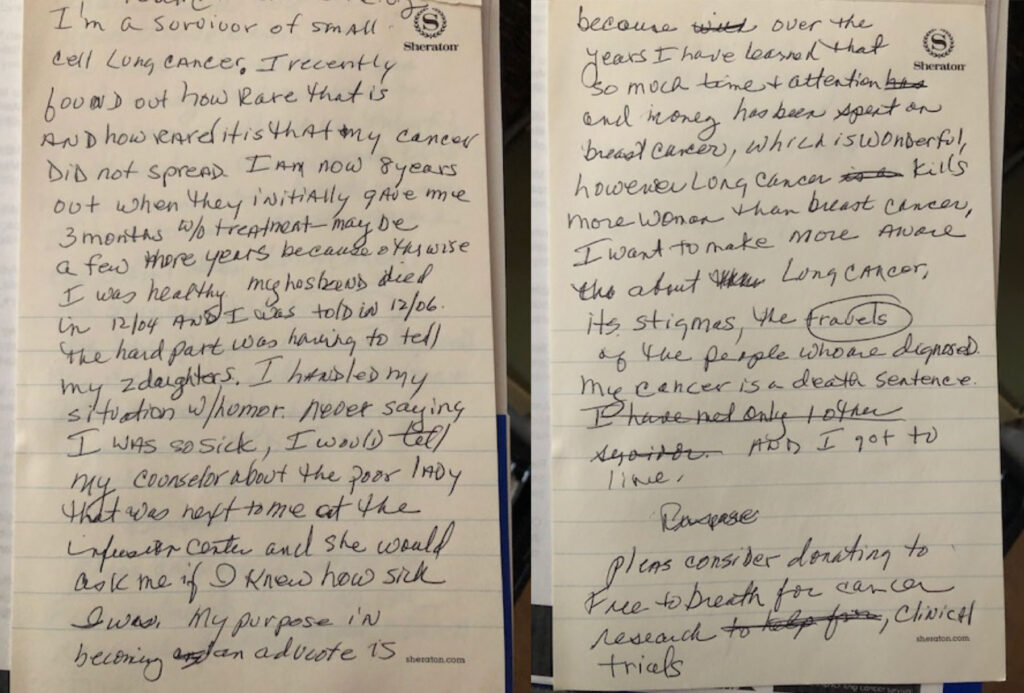 I'm a survivor of small
Sheraton
cell Long cancer. I recently
found out how Rare that is
AND how rare it is that my cancer
DiD not spread. I Am now 8 years
out when they initially gave me
3 months w/o treatment - may be
a few more years because otherwise
I was healthy. my hosbend died
in 12/04 AND I was told in 12/06.
The hard part was having to tell
my 2 daughters. I HANDLED my
situation w/humor. Never saying
I WAS so sick, I would tell
my counselor about the poor lady
that was next to me at the
infusion center and she would
ask me if I knew how sick
I was. My purpose in
becoming an advocte is
sheraton.com
because over the
years I have learned that
Sheraton
so much time + attention has
and money has been spent on
breast cancer, which is wonderful,
however Long cancer is a kills
more woman than breast cancer,
I want to make more Aware
tho about Long cancer,
its stigmas, the travels
of the people who are dignosed.
My cancer is a death sentence.
I have met only 1 other
AND I got to
live.
pleas consider donating to
Free to breath for cancer
research to help for, clinicl
sheraton.com
trials